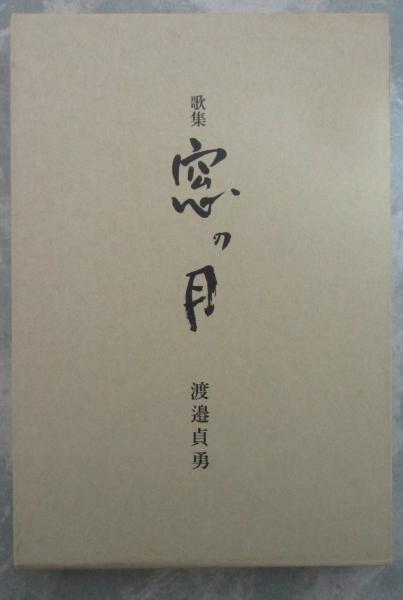 歌集
窓の月
渡邉貞勇